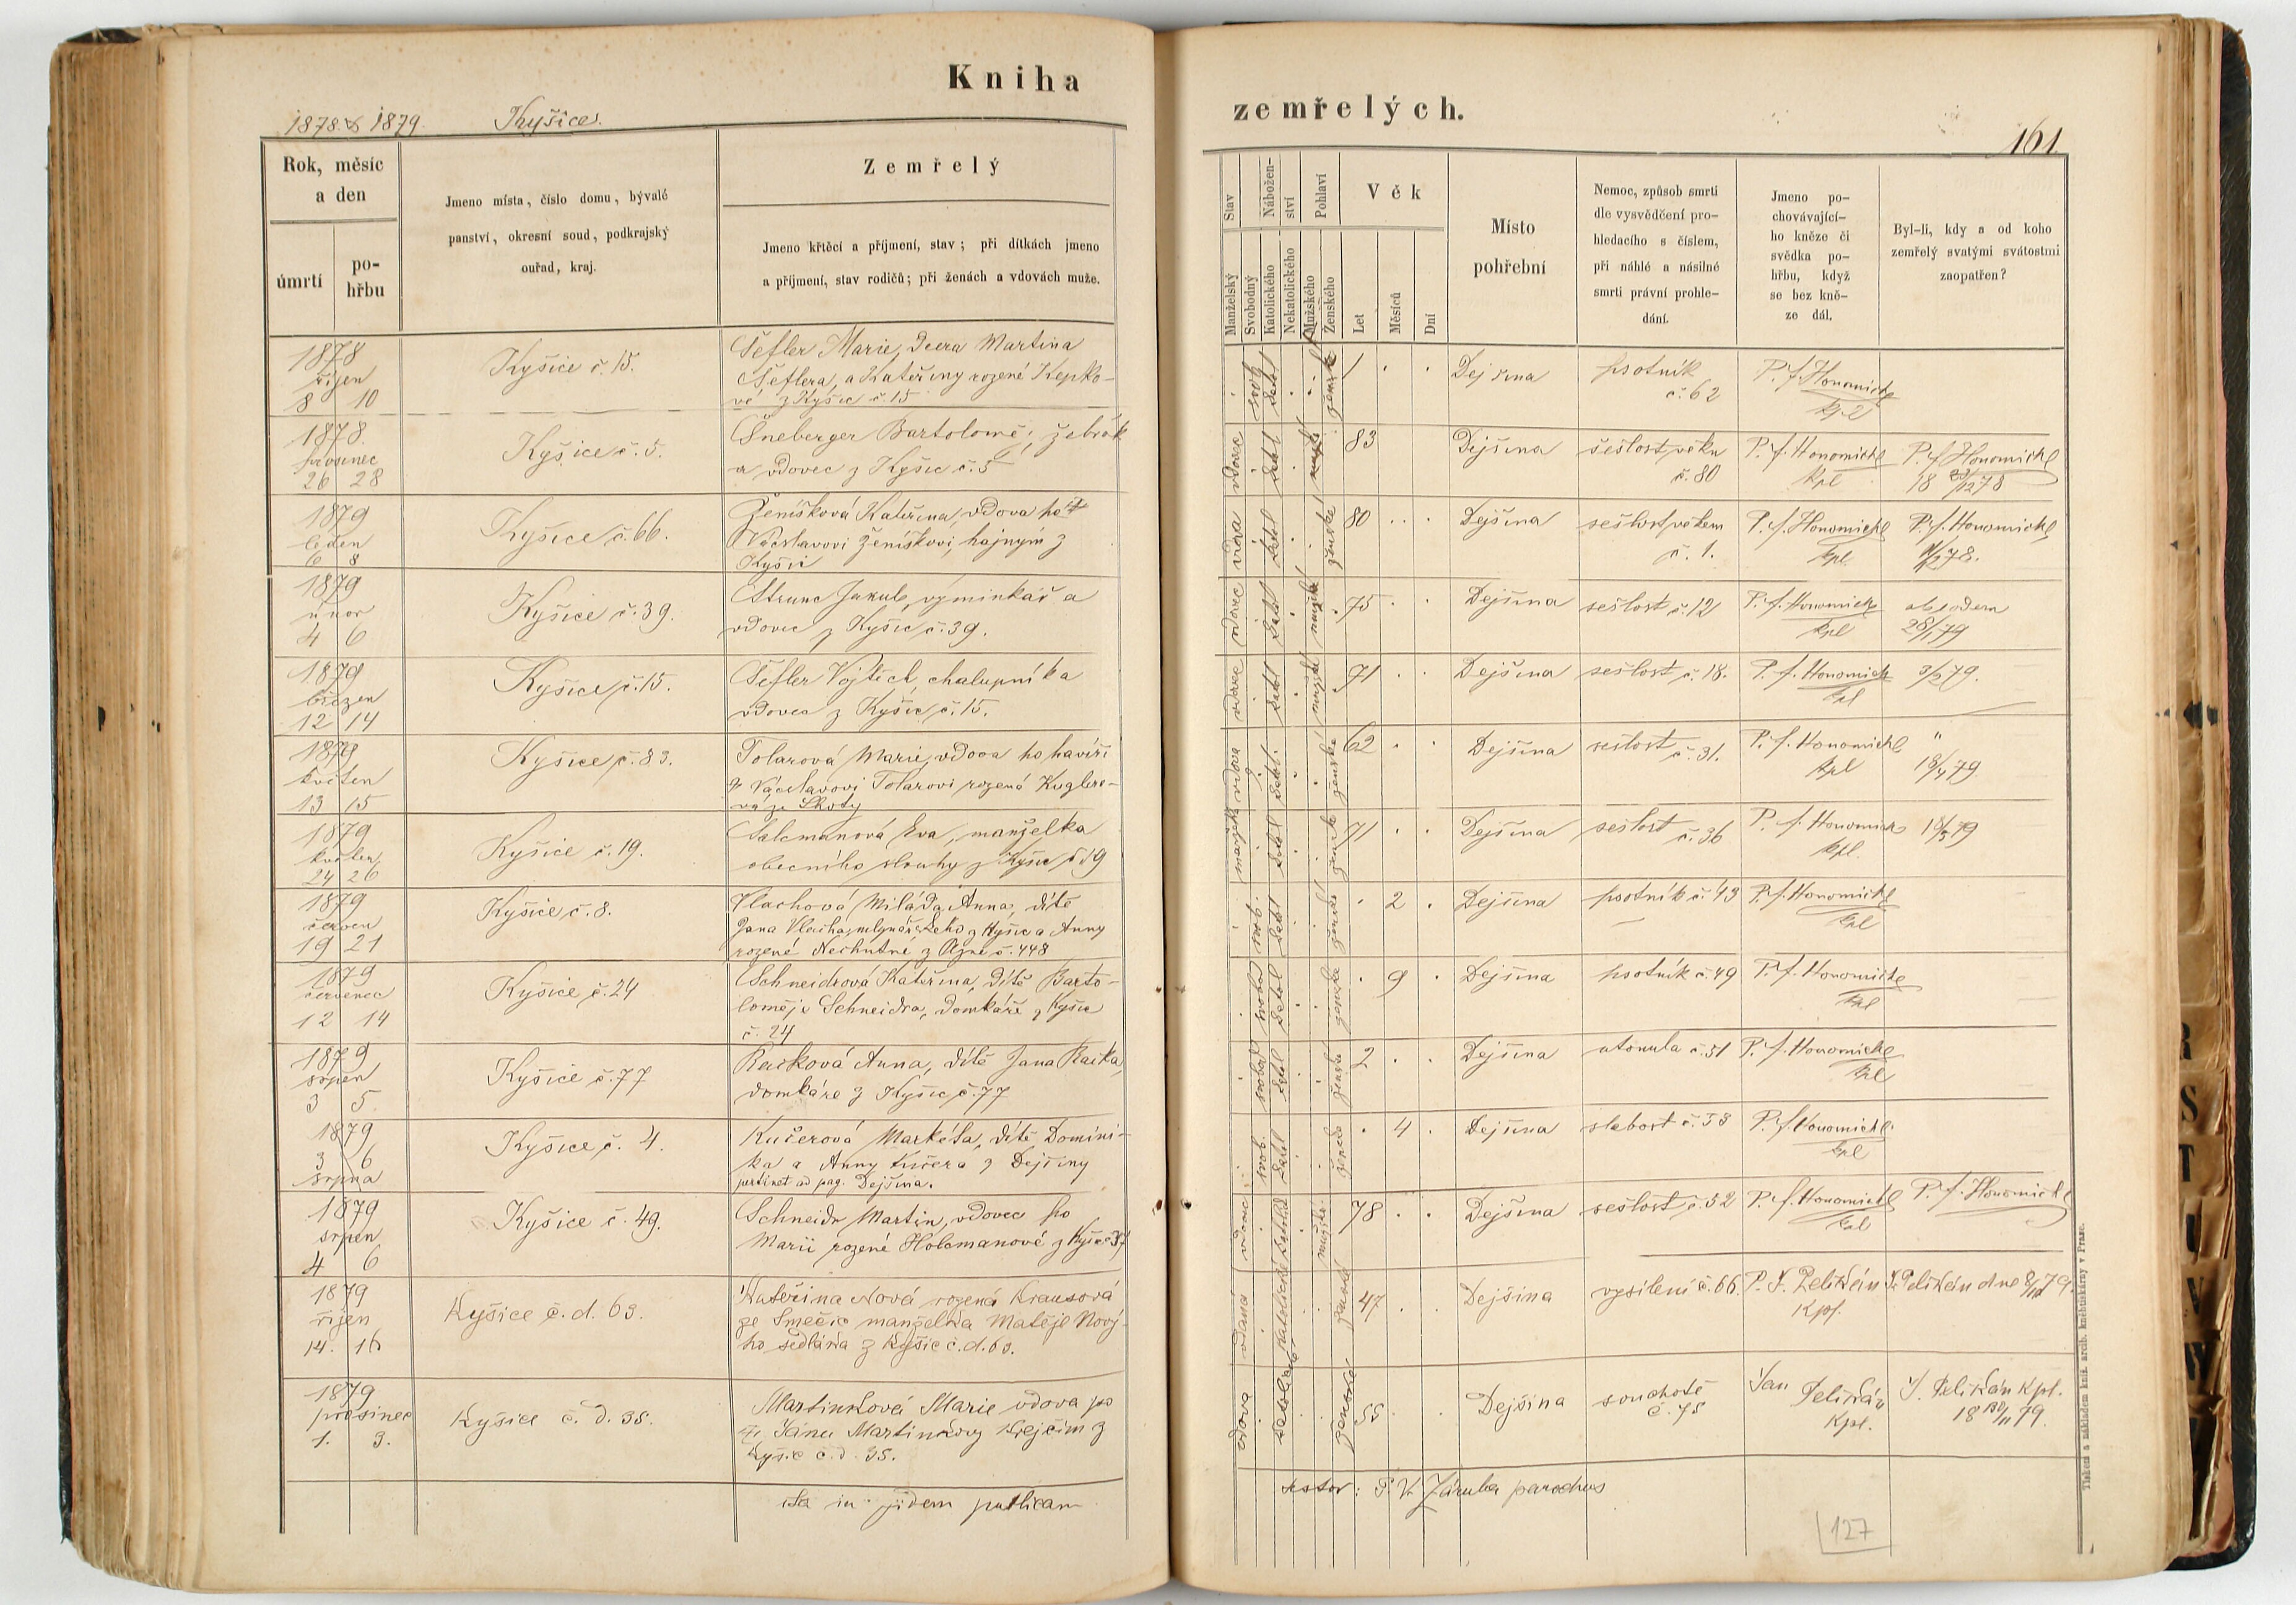 Kniha
1878 & 1879. Kyšice.
Rok, měsíc
a den
úmrtí
po-
hřbu
Jmeno místa, číslo domu, bývalé
panství, okresní soud, podkrajský
ouřad, kraj.
Zemřelý
Jmeno křtěcí a příjmení, stav; při dítkách jmeno
a příjmení, stav rodičů; při ženách a vdovách muže.
1878
říjen
8 10
Kyšice č. 15.
Šefler Marie, dcera Martina
Šeflera, a Kateřiny rozené Kepko-
vé z Kyšic č. 15
1878.
prosinec
26 28
Kyšice č. 5.
Šneberger Bartoloměj, žebrák
a vdovec z Kyšic č. 5
1879
leden
6 8
Kyšice č. 66.
Ženíšková Kateřina, vdova po
Václavovi Ženíškovi, hajným z
Kyšic
1879
únor
4 6
Kyšice č. 39.
Strunc Jakub, výminkář a
vdovec z Kyšic č. 39.
1879
březen
12 14
Kyšice č. 15.
Šefler Vojtěch, chalupníka
vdovec z Kyšic č. 15.
1879
květen
13 15
Kyšice č. 83.
Tolarová Marie, vdova po havíři
Václavovi Tolarovi rozená Kuglere-
vá ze Lhoty
1879
květen
24 26
Kyšice č. 19.
Salcmanová Eva, manželka
obecního slouhy z Kyšic č 19
1879
červen
19 21
Kyšice č. 8.
Vlachová Miláda Anna, dítě
Jana Vlacha, mlynářského z Kyšic a Anny
rozené Nechutné z Plzně č. 448
1879
červenec
12 14
Kyšice č. 24
Schneidrová Kateřina, dítě Barto-
loměje Schneidra, domkáře z Kyšic
č. 24
1879
srpen
3 5
Kyšice č. 77
Racková Anna, dítě Jana Racka,
domkáře z Kyšic č. 77
1879
3 6
srpna
Kyšice č. 4.
Kučerová Markéta, dítě Domini-
ka a Anny Kučera z Dejšiny
pertinet ad pag. Dejšina.
1879
srpen
4 6
Kyšice č. 49.
Schneidr Martin, vdovec po
Marii rozené Holcmanové z Kyšic
1879
říjen
14. 16
Kyšice č. d. 63.
Kateřina Nová rozená Krausová
ze Smečic manželka Matěje Nový-
ho sedláka z Kyšic č. d. 63.
1879
prosinec
1. 3.
Kyšice č. d. 35.
Martinková Marie vdova po
Janu Martinkovy krejčím z
Kyšic č. d. 35.
ita in fidem publicam
zemřelých.
161
Stav
Manželský
Svobodný
Nábožen-
ství
Katolického
Nekatolického
Pohlaví
Mužského
Ženského
Věk
Let
Měsíců
Dní
Místo
pohřební
Nemoc, způsob smrti
dle vysvědčení pro-
hledacího s číslem,
při náhlé a násilné
smrti právní prohle-
dání.
Jmeno po-
chovávající-
ho kněze či
svědka po-
hřbu, když
se bez kně-
ze dál.
Byl-li, kdy a od koho
zemřelý svatými svátostmi
zaopatřen?
svob. katol ženské 1 Dejšina psotník
č. 62 P. f. Honomichl
kpl
vdovec katol mužské 83 Dejšina sešlost věku
č. 80 P. f. Honomichl
kpl P. f. Honomichl
18 23/12 78
vdova katol ženské 80 Dejšina sešlost věkem
č. 1. P. f. Honomichl
kpl P. f. Honomichl
vdovec katol mužské 75 Dejšina sešlost č. 12 P. f. Honomichl
kpl ab eodem
28/1 79
vdovec katol mužské 71 Dejšina sešlost č. 18. P. f. Honomichl
kpl 3/3 79.
vdova katol. ženské 62 Dejšina sešlost č. 31. P. f. Honomichl
kpl "
18/4 79.
manželka katol ženské 71 Dejšina sešlost č. 36 P. f. Honomichl
kpl. 18/5 79
svob. katol ženské 2 Dejšina psotník č. 43 P. f. Honomichl
kpl
svobod katol ženské 9 Dejšina psotník č. 49 P. f. Honomichl
kpl
svobod katol ženské 2 Dejšina utonula č. 51 P. f. Honomichl
kpl
svob. katol ženské 4 Dejšina slabost č. 53 P. f. Honomichl
kpl
vdovec katolické mužské 78 Dejšina sešlost č. 52 P. f. Honomichl
kpl P. f. Honomichl
vdaná katolické ženské 47 Dejšina vysílení č. 66. P. J. Pelikán
Kpl. J. Pelikán dne 8/10 79.
vdova katolické ženské 55 Dejšina souchotě
č. 75 Jan
Pelikán
Kpl. J. Pelikán kpl.
18 30/11 79.
testor: P. V. Záruba parochus
127
Tiskem a nákladem kníž. arcib. kněhtiskárny v Praze.